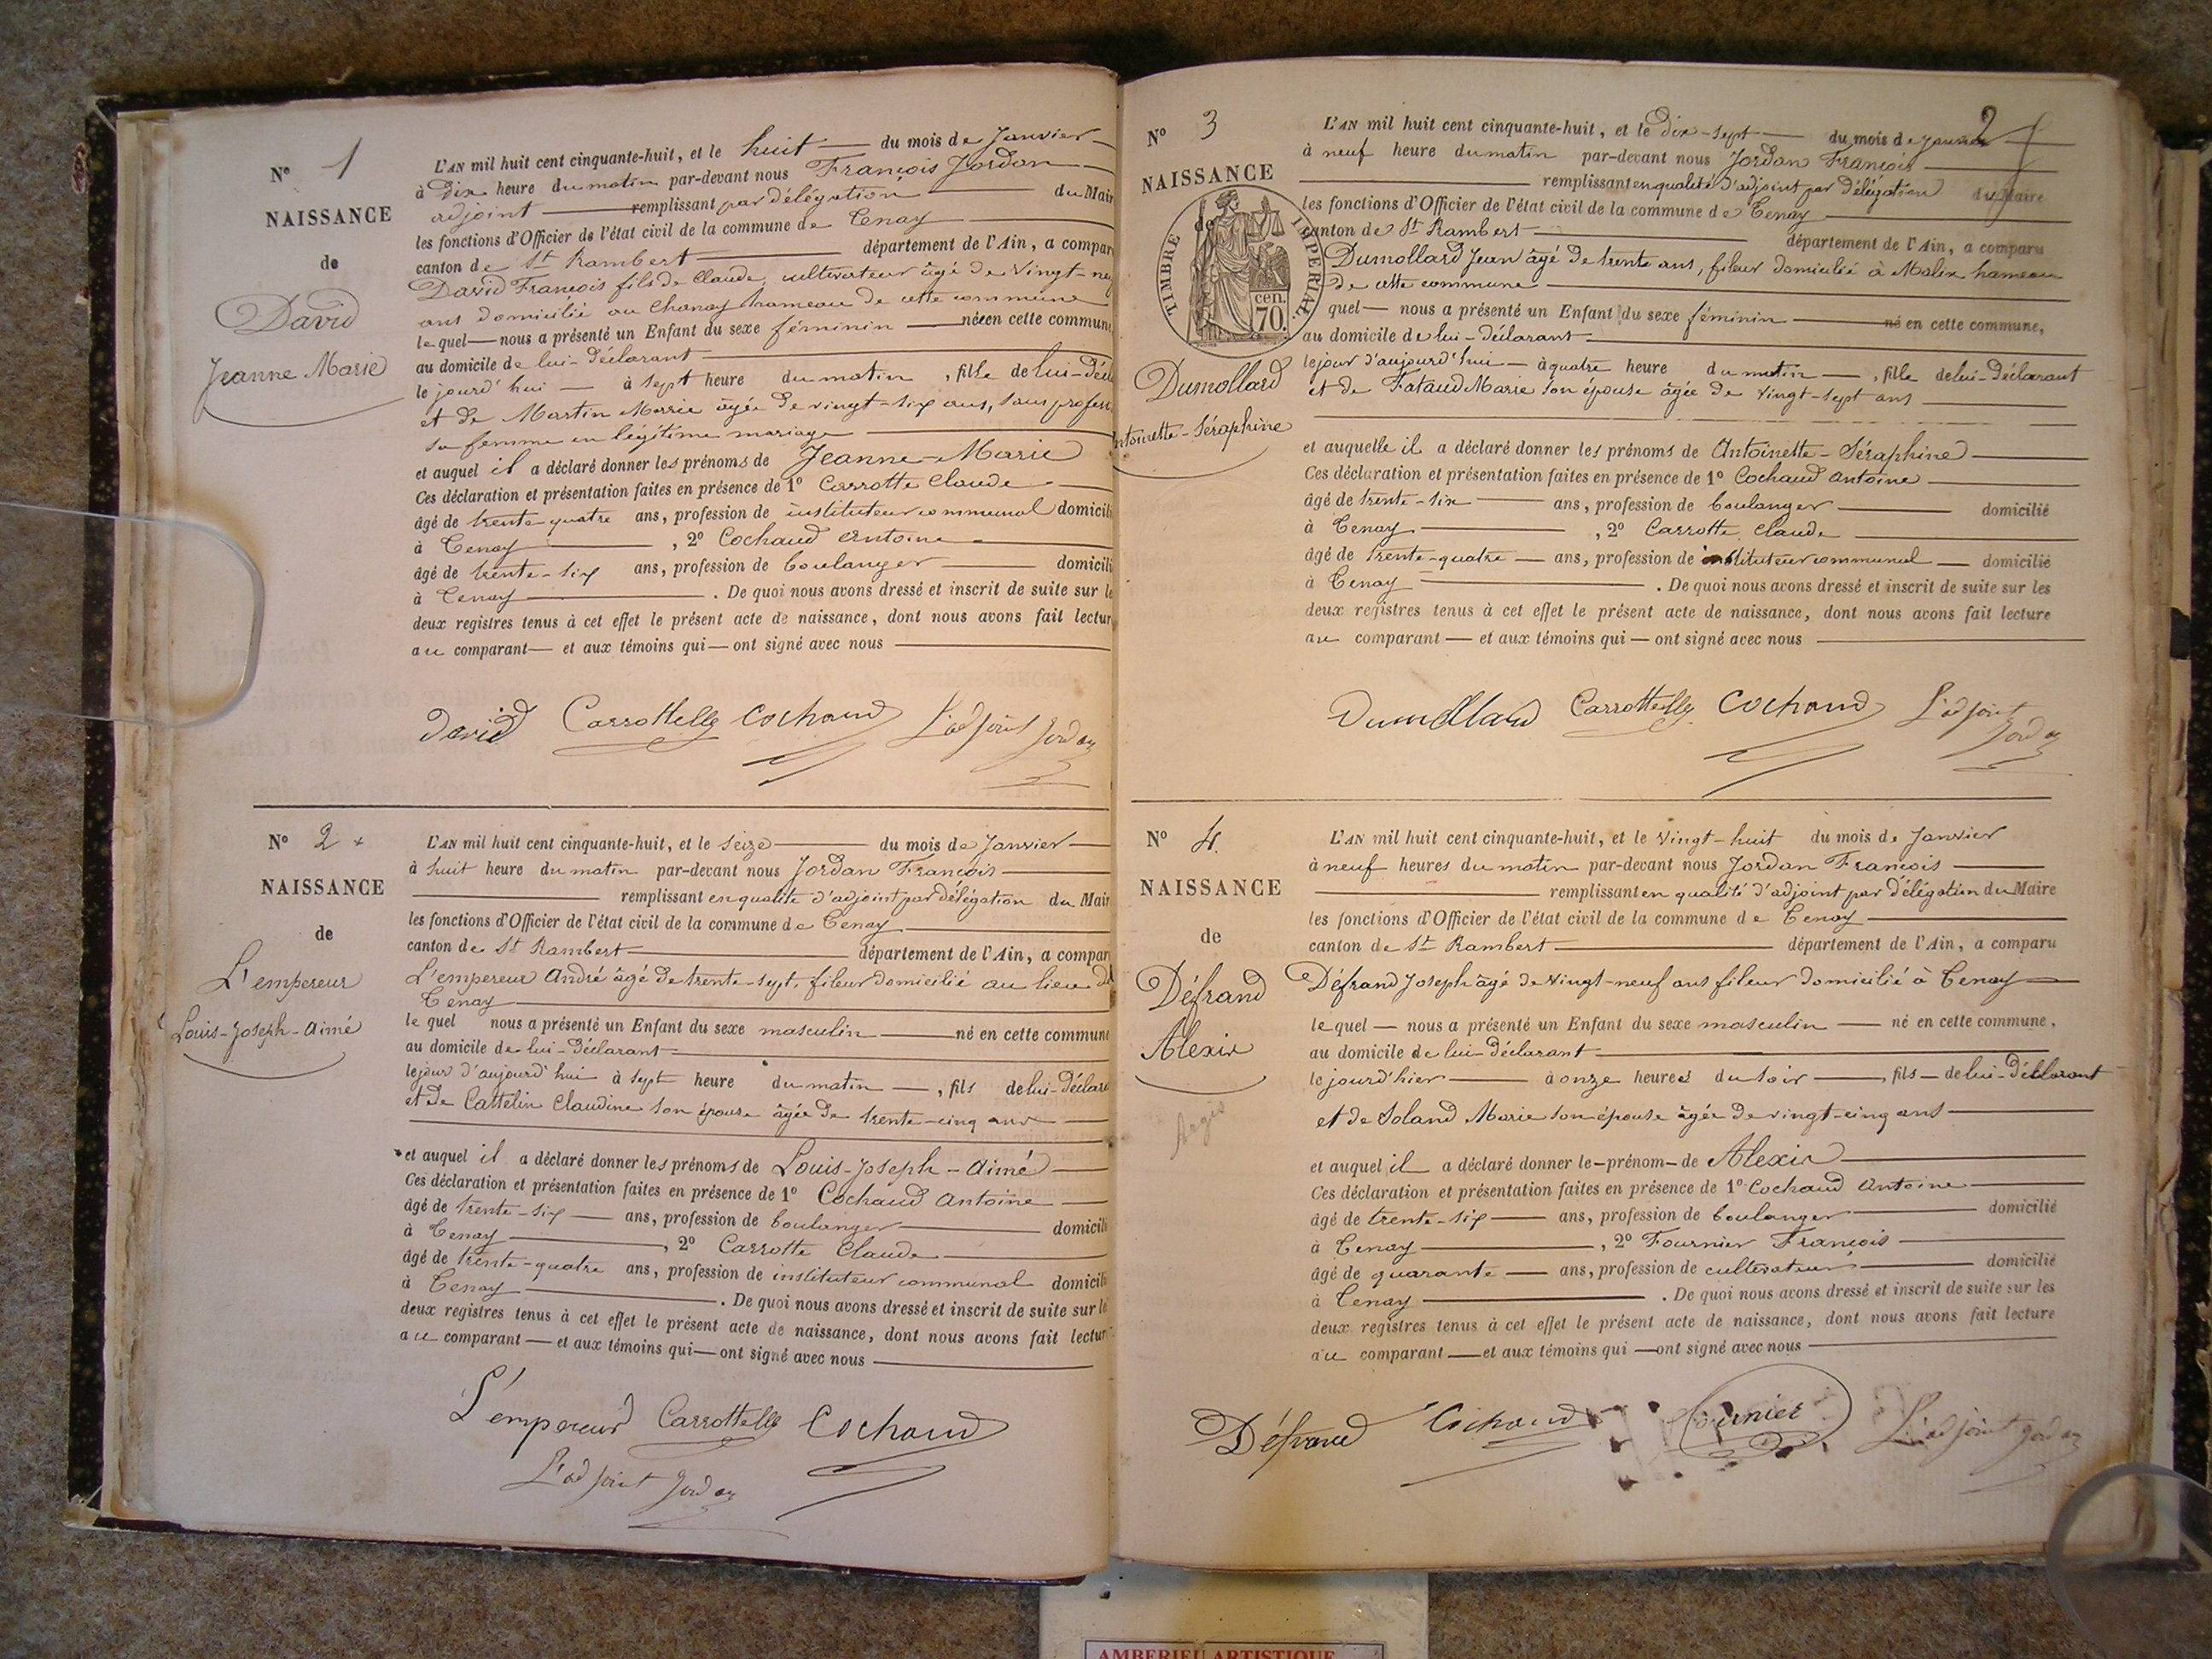 N° 1
NAISSANCE
de
David
Jeanne Marie
L'AN mil huit cent cinquante-huit, et le huit du mois de Janvier
à Dix heure du matin par-devant nous François Jordan
adjoint remplissant par délégation du Mair
les fonctions d'Officier de l'état civil de la commune de Tenay
canton de St Rambert département de l'Ain, a compar
David François fils de Claude, cultivateur âgé de vingt-neuf
ans domicilié au Chanay hameau de cette commune
le quel nous a présenté un Enfant du sexe féminin née en cette commun
au domicile de lui-déclarant
le jourd'hui à sept heure du matin, fille de lui-décl
et de Martin Marie âgée de vingt-six ans, sans profess
sa femme en légitime mariage
et auquel il a déclaré donner les prénoms de Jeanne-Marie
Ces déclaration et présentation faites en présence de 1° Carrotte Claude
âgé de trente-quatre ans, profession de instituteur communal domicili
à Tenay, 2° Cochaud Antoine
âgé de trente-six ans, profession de boulanger domicili
à Tenay. De quoi nous avons dressé et inscrit de suite sur le
deux registres tenus à cet effet le présent acte de naissance, dont nous avons fait lectur
au comparant et aux témoins qui ont signé avec nous
David Carrotte Cochaud L'adjoint Jordan
N° 2
NAISSANCE
de
L'empereur
Louis-Joseph-Aimé
L'AN mil huit cent cinquante-huit, et le seize du mois de Janvier
à huit heure du matin par-devant nous Jordan François
remplissant en qualité d'adjoint par délégation du Mair
les fonctions d'Officier de l'état civil de la commune de Tenay
canton de St Rambert département de l'Ain, a compar
L'empereur André âgé de trente-sept, fileur domicilié au lieu de
Tenay
le quel nous a présenté un Enfant du sexe masculin né en cette commun
au domicile de lui-déclarant
le jour d'aujourd'hui à sept heure du matin, fils de lui-déclar
et de Cattelin Claudine son épouse âgée de trente-cinq ans
et auquel il a déclaré donner les prénoms de Louis-Joseph-Aimé
Ces déclaration et présentation faites en présence de 1° Cochaud Antoine
âgé de trente-six ans, profession de boulanger domicili
à Tenay, 2° Carrotte Claude
âgé de trente-quatre ans, profession de instituteur communal domicili
à Tenay. De quoi nous avons dressé et inscrit de suite sur le
deux registres tenus à cet effet le présent acte de naissance, dont nous avons fait lectur
au comparant et aux témoins qui ont signé avec nous
L'empereur Carrotte Cochaud
L'adjoint Jordan
2
N° 3
NAISSANCE
de
TIMBRE IMPERIAL
70 cen.
Dumollard
Antoinette-Séraphine
L'AN mil huit cent cinquante-huit, et le Dix-sept du mois de Janvier
à neuf heure du matin par-devant nous Jordan François
remplissant en qualité d'adjoint par délégation du Maire
les fonctions d'Officier de l'état civil de la commune de Tenay
canton de St Rambert département de l'Ain, a comparu
Dumollard Jean âgé de trente ans, fileur domicilié à Malix hameau
de cette commune
quel nous a présenté un Enfant du sexe féminin né en cette commune,
au domicile de lui-déclarant
le jour d'aujourd'hui à quatre heure du matin, fille de lui-déclarant
et de Fataud Marie son épouse âgée de vingt-sept ans
et auquelle il a déclaré donner les prénoms de Antoinette-Séraphine
Ces déclaration et présentation faites en présence de 1° Cochaud Antoine
âgé de trente-six ans, profession de boulanger domicilié
à Tenay, 2° Carrotte Claude
âgé de trente-quatre ans, profession de instituteur communal domicilié
à Tenay. De quoi nous avons dressé et inscrit de suite sur les
deux registres tenus à cet effet le présent acte de naissance, dont nous avons fait lecture
au comparant et aux témoins qui ont signé avec nous
Dumollard Carrotte Cochaud L'adjoint Jordan
N° 4
NAISSANCE
de
Défrand
Alexis
Argis
L'AN mil huit cent cinquante-huit, et le vingt-huit du mois de Janvier
à neuf heures du matin par-devant nous Jordan François
remplissant en qualité d'adjoint par délégation du Maire
les fonctions d'Officier de l'état civil de la commune de Tenay
canton de St Rambert département de l'Ain, a comparu
Défrand Joseph âgé de vingt-neuf ans fileur domicilié à Tenay
le quel nous a présenté un Enfant du sexe masculin né en cette commune,
au domicile de lui-déclarant
le jourd'hier à onze heures du soir, fils de lui-déclarant
et de Soland Marie son épouse âgée de vingt-cinq ans
et auquel il a déclaré donner le-prénom-de Alexis
Ces déclaration et présentation faites en présence de 1° Cochaud Antoine
âgé de trente-six ans, profession de boulanger domicilié
à Tenay, 2° Fournier François
âgé de quarante ans, profession de cultivateur domicilié
à Tenay. De quoi nous avons dressé et inscrit de suite sur les
deux registres tenus à cet effet le présent acte de naissance, dont nous avons fait lecture
au comparant et aux témoins qui ont signé avec nous
Défrand Cochaud Fournier L'adjoint Jordan
AMBERIEU ARTISTIQUE